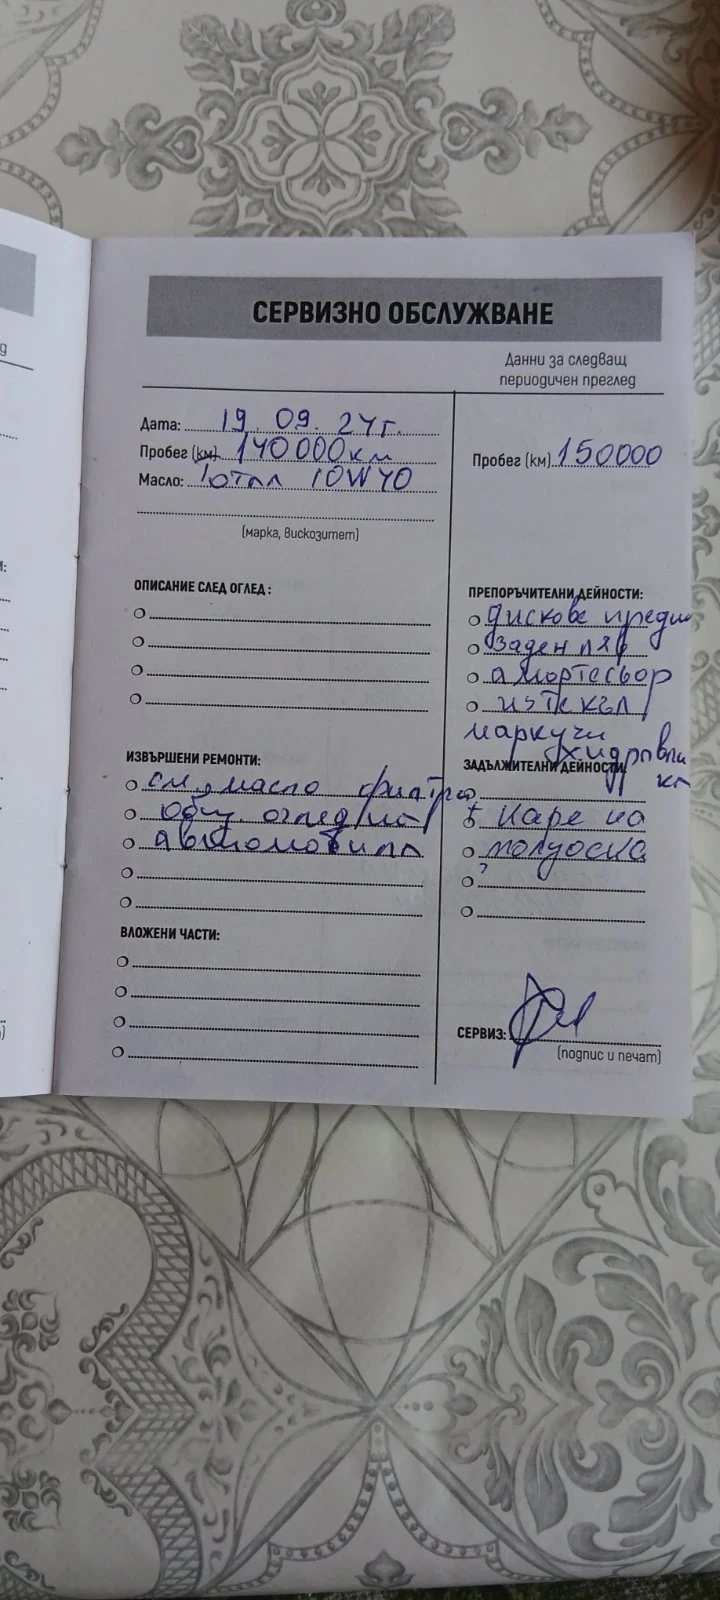 СЕРВИЗНО ОБСЛУЖВАНЕ
Данни за следващ
периодичен преглед
Дата: 19.09.24г.
Пробег (км) 140000км
Масло: Тотал 10W40
(марка, вискозитет)
Пробег (км) 150000
ОПИСАНИЕ СЛЕД ОГЛЕД:
ИЗВЪРШЕНИ РЕМОНТИ:
см. масло филтр
общ. оглед на
автомобила
ВЛОЖЕНИ ЧАСТИ:
ПРЕПОРЪЧИТЕЛНИ ДЕЙНОСТИ:
дискове предни
заден ляв
амортесьор
изтекъл
маркучи
хидравли
ка
ЗАДЪЛЖИТЕЛНИ ДЕЙНОСТИ:
+ каре на
полуоска
?
СЕРВИЗ:
(подпис и печат)
д
:
)